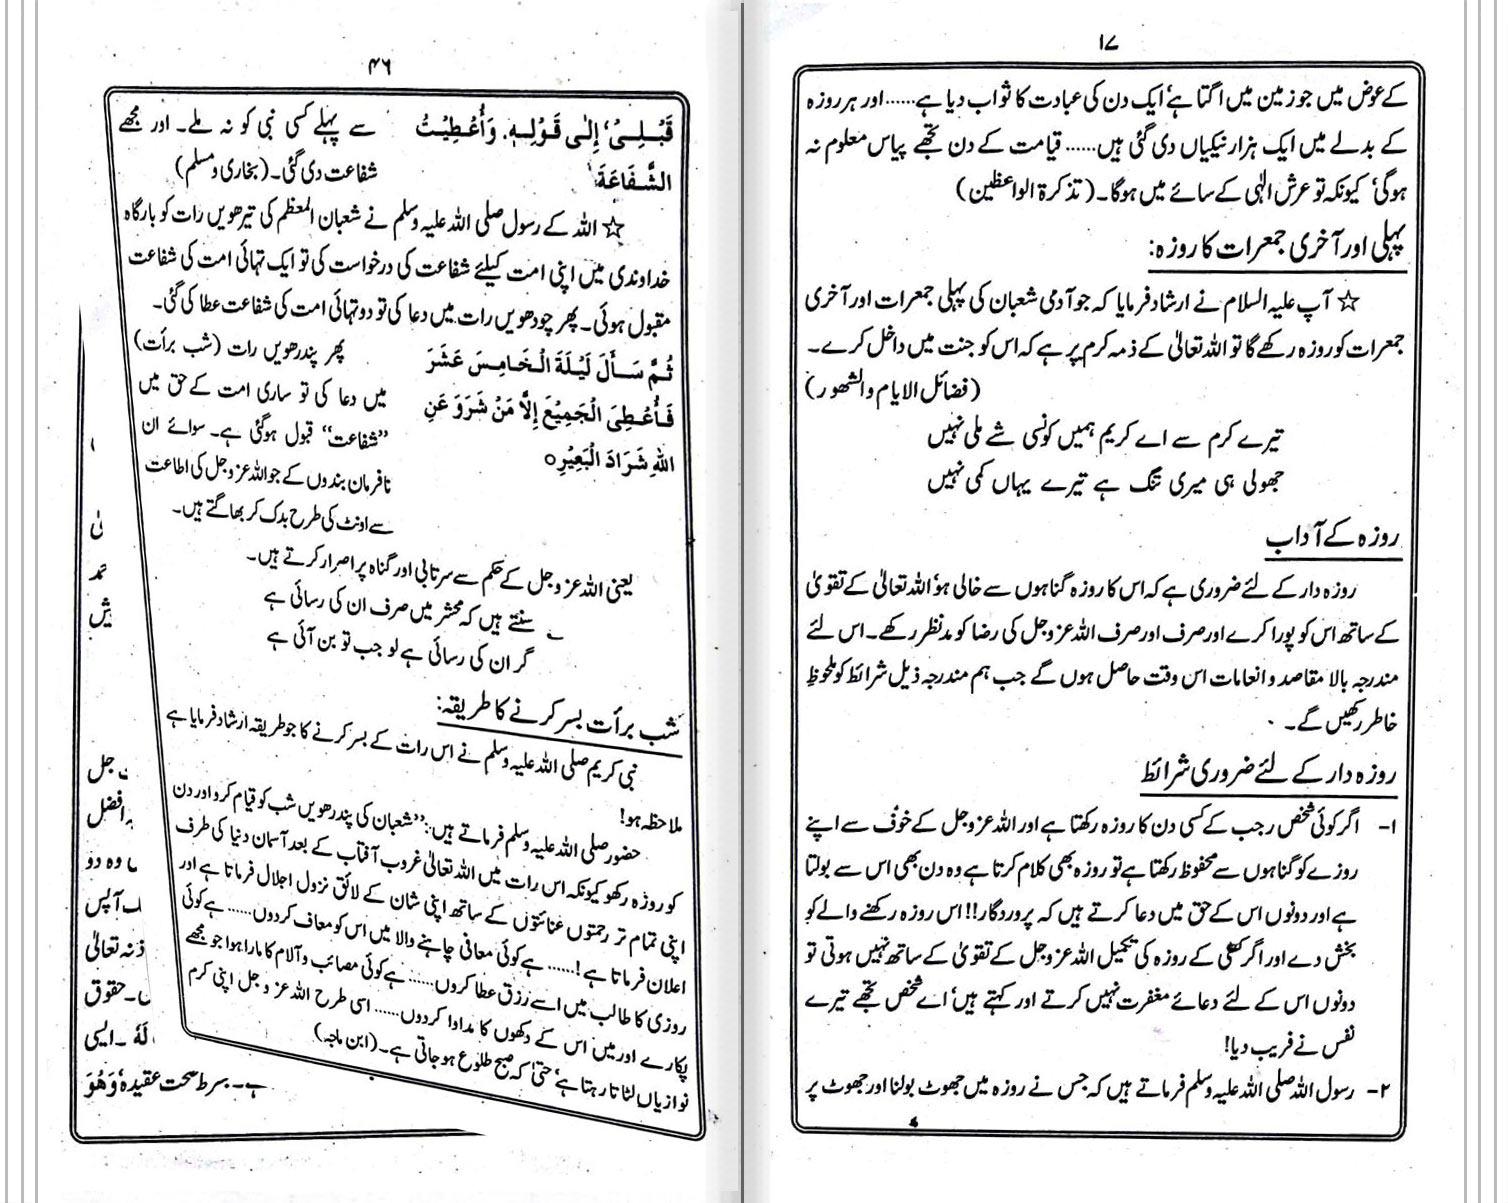 ۱۷
کے عوض میں جو زمین میں اگتا ہے ایک دن کی عبادت کا ثواب دیا ہے...... اور ہر روزہ
کے بدلے میں ایک ہزار نیکیاں دی گئی ہیں...... قیامت کے دن تجھے پیاس معلوم نہ
ہوگی، کیونکہ تو عرش الٰہی کے سائے میں ہوگا۔ (تذکرۃ الواعظین)
پہلی اور آخری جمعرات کا روزہ:
☆ آپ علیہ السلام نے ارشاد فرمایا کہ جو آدمی شعبان کی پہلی جمعرات اور آخری
جمعرات کو روزہ رکھے گا تو اللہ تعالیٰ کے ذمہ کرم پر ہے کہ اس کو جنت میں داخل کرے۔
(فضائل الایام والشھور)
تیرے کرم سے اے کریم ہمیں کونسی شے ملی نہیں
جھولی ہی میری تنگ ہے تیرے یہاں کمی نہیں
روزہ کے آداب
روزہ دار کے لئے ضروری ہے کہ اس کا روزہ گناہوں سے خالی ہو، اللہ تعالیٰ کے تقویٰ
کے ساتھ اس کو پورا کرے اور صرف اور صرف اللہ عزوجل کی رضا کو مدنظر رکھے۔ اس لئے
مندرجہ بالا مقاصد و انعامات اس وقت حاصل ہوں گے جب ہم مندرجہ ذیل شرائط کو ملحوظِ
خاطر رکھیں گے۔
روزہ دار کے لئے ضروری شرائط
۱- اگر کوئی شخص رجب کے کسی دن کا روزہ رکھتا ہے اور اللہ عزوجل کے خوف سے اپنے
روزے کو گناہوں سے محفوظ رکھتا ہے تو روزہ بھی کلام کرتا ہے وہ دن بھی اس سے بولتا
ہے اور دونوں اس کے حق میں دعا کرتے ہیں کہ پروردگار!! اس روزہ رکھنے والے کو
بخش دے اور اگر کسی کے روزہ کی تکمیل اللہ عزوجل کے تقویٰ کے ساتھ نہیں ہوتی تو
دونوں اس کے لئے دعائے مغفرت نہیں کرتے اور کہتے ہیں، اے شخص تجھے تیرے
نفس نے فریب دیا!
۲- رسول اللہ صلی اللہ علیہ وسلم فرماتے ہیں کہ جس نے روزہ میں جھوٹ بولنا اور جھوٹ پر
۴۶
قَبْلِیْ، اِلٰی قَوْلِہٖ. وَاُعْطِیْتُ سے پہلے کسی نبی کو نہ ملے۔ اور مجھے
الشَّفَاعَةَ شفاعت دی گئی۔ (بخاری و مسلم)
☆ اللہ کے رسول صلی اللہ علیہ وسلم نے شعبان المعظم کی تیرھویں رات کو بارگاہ
خداوندی میں اپنی امت کیلئے شفاعت کی درخواست کی تو ایک تہائی امت کی شفاعت
مقبول ہوئی۔ پھر چودھویں رات میں دعا کی تو دو تہائی امت کی شفاعت عطا کی گئی۔
ثُمَّ سَأَلَ لَیْلَةَ الْخَامِسَ عَشَرَ پھر پندرھویں رات (شب برأت)
فَأُعْطِیَ الْجَمِیْعَ اِلَّا مَنْ شَرَوَ عَنِ میں دعا کی تو ساری امت کے حق میں
اللهِ شَرَادَ الْبَعِیْرِ ○ "شفاعت" قبول ہوگئی ہے۔ سوائے ان
نافرمان بندوں کے جو اللہ عزوجل کی اطاعت
سے اونٹ کی طرح بدک کر بھاگتے ہیں۔
یعنی اللہ عزوجل کے حکم سے سرتابی اور گناہ پر اصرار کرتے ہیں۔
سنتے ہیں کہ محشر میں صرف ان کی رسائی ہے
گر ان کی رسائی ہے لو جب تو بن آئی ہے
شب برأت بسر کرنے کا طریقہ:
نبی کریم صلی اللہ علیہ وسلم نے اس رات کے بسر کرنے کا جو طریقہ ارشاد فرمایا ہے
ملاحظہ ہو!
حضور صلی اللہ علیہ وسلم فرماتے ہیں: "شعبان کی پندرھویں شب کو قیام کرو اور دن
کو روزہ رکھو کیونکہ اس رات میں اللہ تعالیٰ غروب آفتاب کے بعد آسمان دنیا کی طرف
اپنی تمام تر رحمتوں عنائتوں کے ساتھ اپنی شان کے لائق نزول اجلال فرماتا ہے اور
اعلان فرماتا ہے!...... ہے کوئی معافی چاہنے والا میں اس کو معاف کردوں...... ہے کوئی
روزی کا طالب میں اسے رزق عطا کروں...... ہے کوئی مصائب و آلام کا مارا ہوا جو مجھے
پکارے اور میں اس کے دکھوں کا مداوا کردوں...... اسی طرح اللہ عزوجل اپنی کرم
نوازیاں لٹاتا رہتا ہے، حتیٰ کہ صبح طلوع ہو جاتی ہے۔ (ابن ماجہ)
جل
افضل
وہ دو
آپس
تعالیٰ
حقوق
ایسی
ہے۔ بسرط صحت عقیدہ وَهُوَ